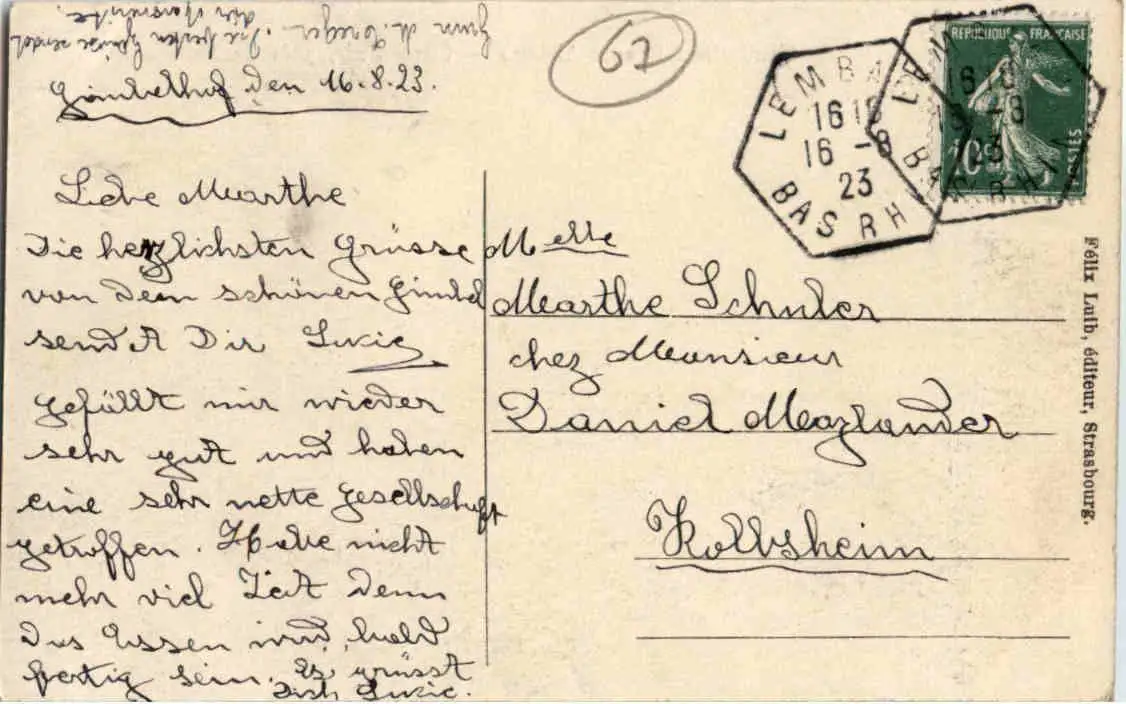 Gimbelhof den 16.8.23.
Liebe Marthe
Die herzlichsten Grüsse
von dem schönen Gimbel
sendet Dir Lucie
gefällt mir wieder
sehr gut und haben
eine sehr nette Gesellschaft
getroffen. Habe nicht
mehr viel Zeit denn
das Essen wird bald
fertig sein. Es grüsst
Dich Lucie.
67
LEMBA
1616
16 -8
23
BAS RH
LEM
BAS RHIN
REPUBLIQUE FRANÇAISE
10c
POSTES
Melle
Marthe Schuler
chez Monsieur
Daniel
Kolbsheim
Félix Luib, éditeur, Strasbourg.